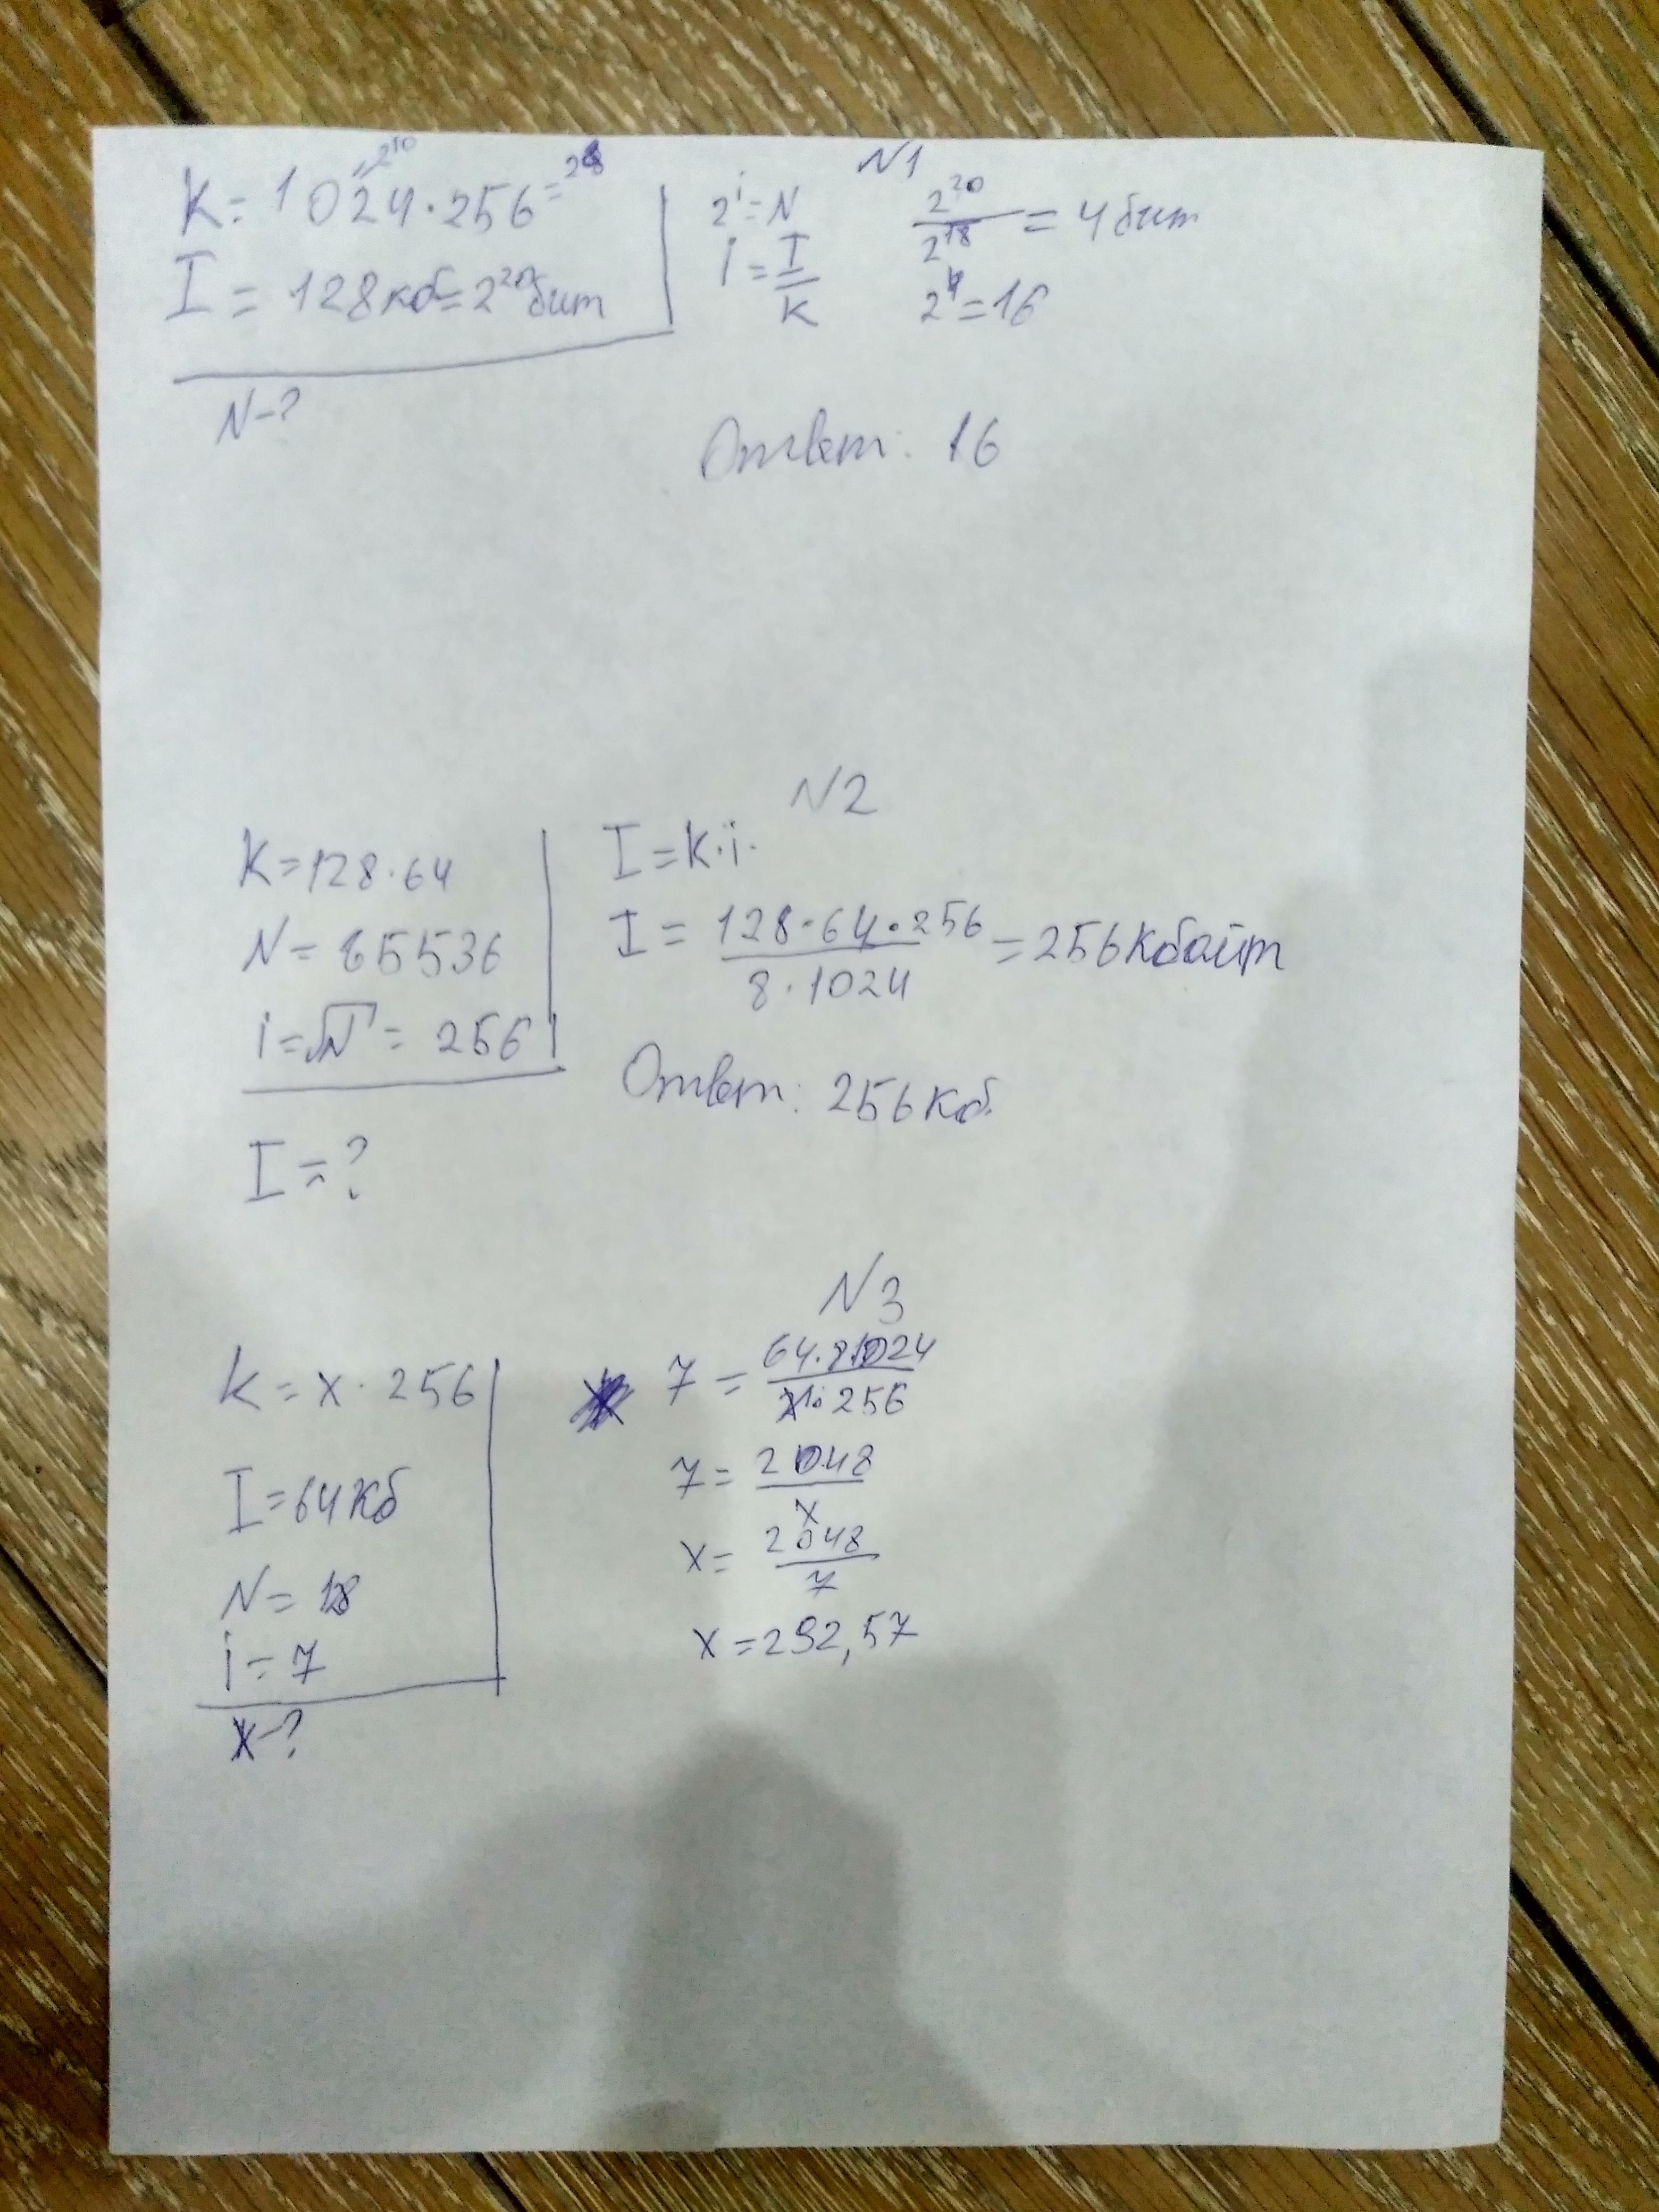 N1
K = 1024 · 256 = 2^8
= 2^10
I = 128 кб = 2^20 бит
N - ?
2^i = N
i = I/K
2^20/2^18 = 4 бит
2^4 = 16
Ответ: 16
N2
K = 128 · 64
N = 65536
i = √N = 256
I = ?
I = K · i.
I = 128 · 64 · 256 / 8 · 1024 = 256 Кбайт
Ответ: 256 Кб.
N3
K = x · 256
I = 64 Кб
i = 7
x - ?
7 = 64 · 8 · 1024 / x · 256
7 = 2048/x
x = 2048/7
x = 292,57